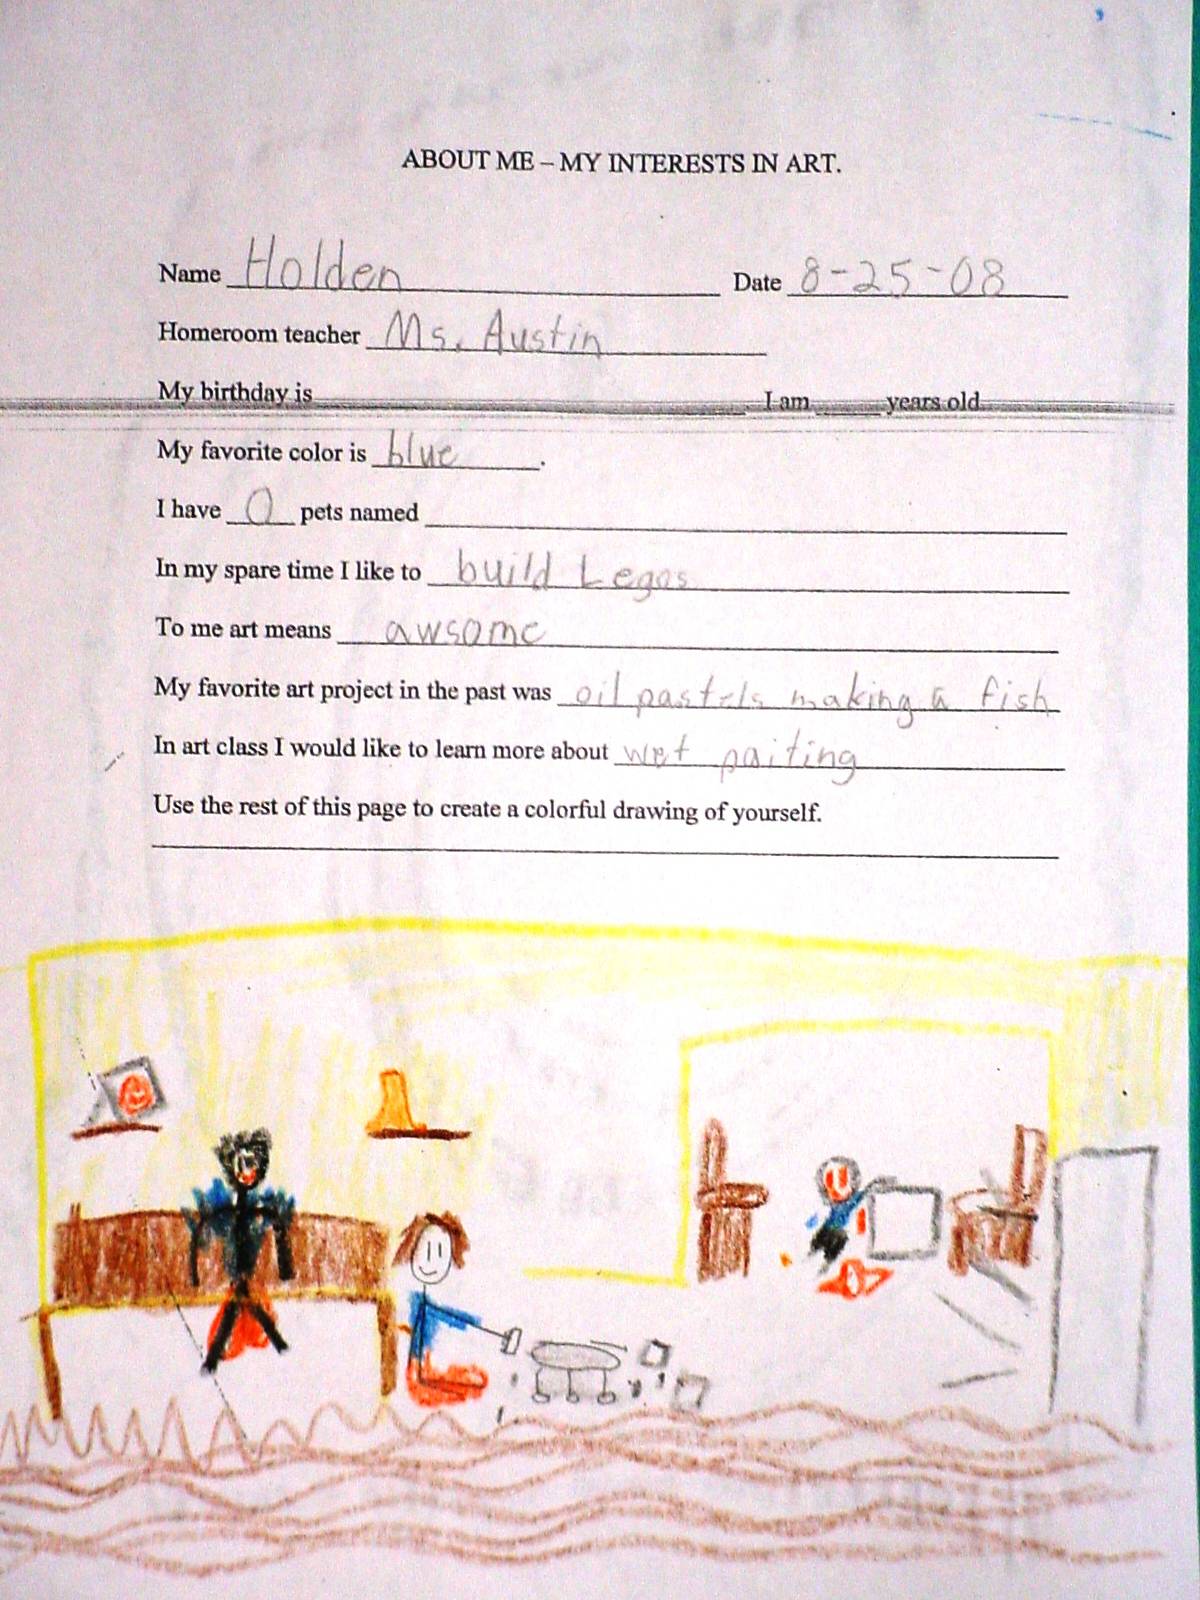 ABOUT ME – MY INTERESTS IN ART.
Name Holden Date 8-25-08
Homeroom teacher Ms. Austin
My birthday is I am years old
My favorite color is blue .
I have 0 pets named
In my spare time I like to build Legos
To me art means awsome
My favorite art project in the past was oil pastels making a fish
In art class I would like to learn more about wet paiting
Use the rest of this page to create a colorful drawing of yourself.